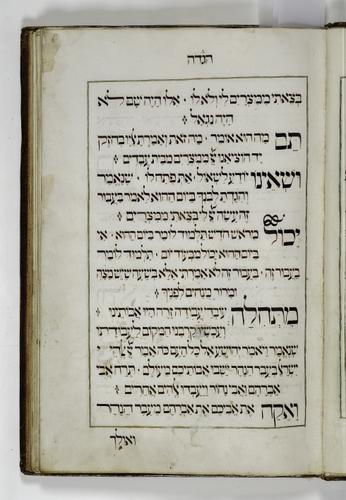 הגדה
בצאתי ממצרים לי ולא לו · אלו היה שם לא
היה נגאל
תם מה הוא אומר · מה זאת ואמרת אליו בחוזק
יד הוציאנו ממצרים מבית עבדים
ושאינו יודע לשאול · את פתח לו · שנאמר
והגדת לבנך ביום ההוא לאמר בעבור
זה עשה לי בצאתי ממצרים
יכול מראש חדש תלמוד לומר ביום ההוא · אי
ביום ההוא יכול מבעוד יום · תלמוד לומר
בעבור זה · בעבור זה לא אמרתי אלא בשעה שיש מצה
ומרור מונחים לפניך
מתחלה עובדי עבודה זרה היו אבותינו
ועכשיו קרבנו המקום לעבודתו
שנאמר ויאמר יהושע אל כל העם כה אמר
ישראל בעבר הנהר ישבו אבותיכם מעולם · תרח אבי
אברהם ואבי נחור ויעבדו אלהים אחרים
ואקח את אביכם את אברהם מעבר הנהר
ואולך